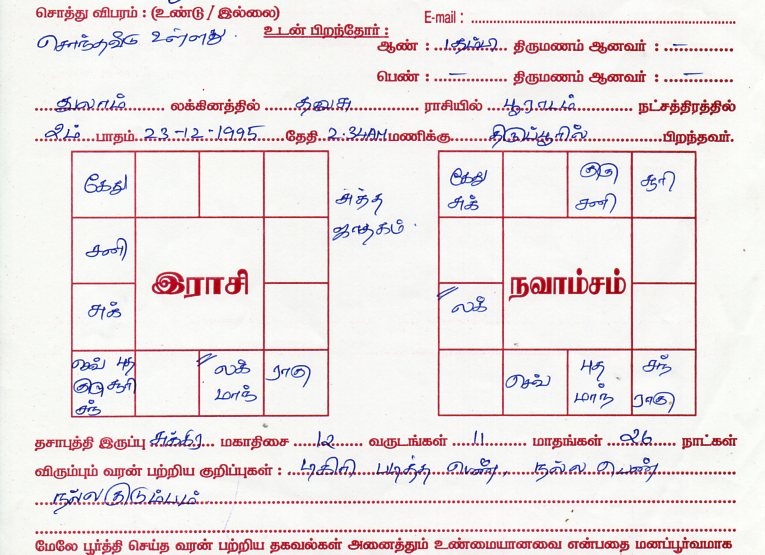 சொத்து விபரம் : (உண்டு / இல்லை)
E-mail :
சொந்தவீடு உள்ளது.
உடன் பிறந்தோர் :
ஆண் : 1 தம்பி திருமணம் ஆனவர் : –
பெண் : – திருமணம் ஆனவர் : –
துலாம் லக்கினத்தில் தனுசு ராசியில் பூராடம் நட்சத்திரத்தில்
2ம் பாதம் 23-12-1995 தேதி 2.34AM மணிக்கு திருப்பூரில் பிறந்தவர்.
கேது
சனி
சுக்
செவ் புத
குரு சூரி
சந்
லக்
மாந்
ராகு
இராசி
சுத்த
ஜாதகம்.
கேது
சுக்
குரு
சனி
சூரி
லக்
செவ்
புத
மாந்
சந்
ராகு
நவாம்சம்
தசாபுத்தி இருப்பு சுக்கிர மகாதிசை 12 வருடங்கள் 11 மாதங்கள் 26 நாட்கள்
விரும்பும் வரன் பற்றிய குறிப்புகள் : டிகிரி படித்த பெண், நல்ல பெண்
நல்ல குடும்பம்
மேலே பூர்த்தி செய்த வரன் பற்றிய தகவல்கள் அனைத்தும் உண்மையானவை என்பதை மனப்பூர்வமாக